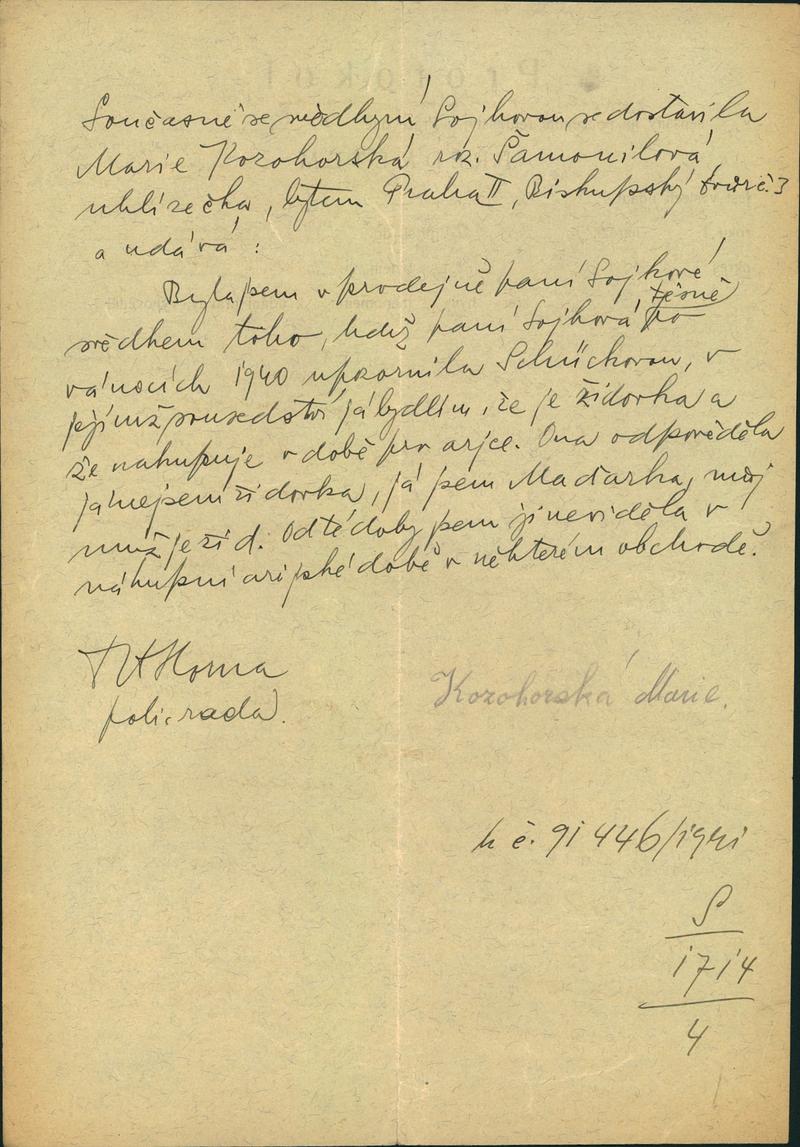 Současně se svědkyní Sojkovou se dostavila
Marie Kozohorská, roz. Šamonilová,
uhlířečka, bytem Praha II, Biskupský dvůr č. 3
a udává:
Byla jsem v prodejně paní Sojkové
svědkem toho, když paní Sojková těsně po
vánocích 1940 upozornila Schückovou, v
jejímž sousedství já bydlím, že je židovka a
že nakupuje v době pro arjce. Ona odpověděla
já nejsem židovka, já jsem Maďarka, můj
muž je žid. Od té doby jsem ji neviděla v
nákupní arijské době v některém obchodě.
Horna
Kozohorská Marie.
polic. rada.
k č. 91446/1941
S
1714
4